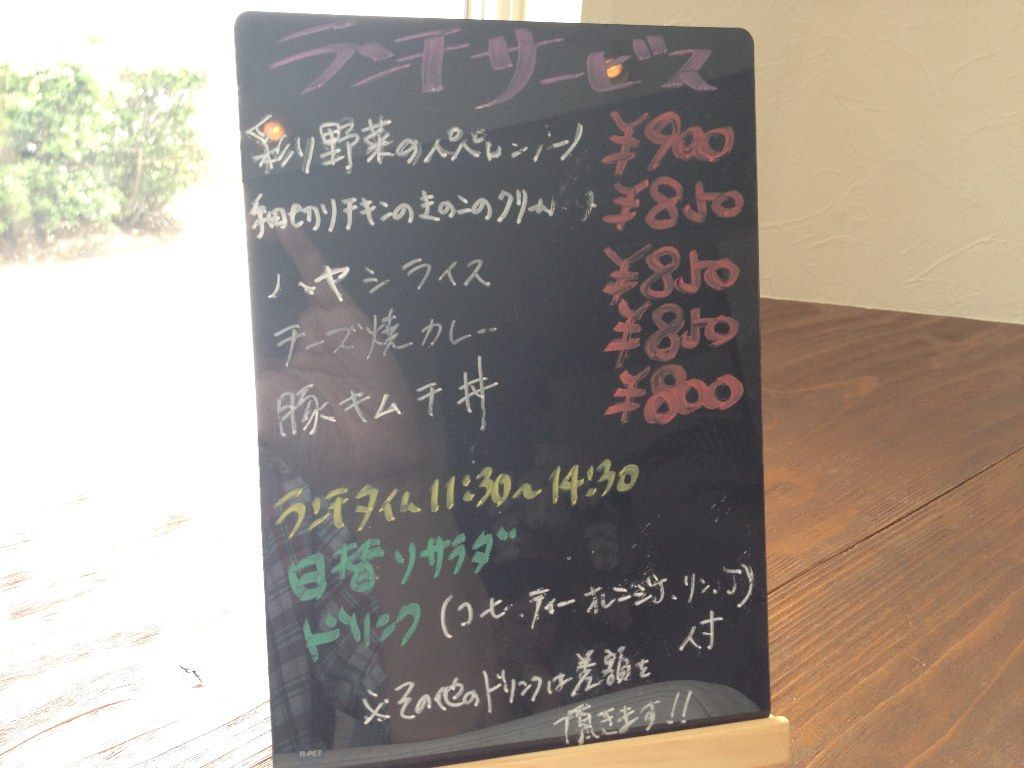 ランチサービス
彩り野菜のペペロンチーノ ¥900
細切りチキンのきのこのクリーム ¥850
ハヤシライス ¥850
チーズ焼カレー ¥850
豚キムチ丼 ¥800
ランチタイム 11:30~14:30
日替りサラダ
ドリンク (コーヒ、ティー オレンジ、リンゴ)
付
※その他のドリンクは差額を
頂きます!!
R-PET